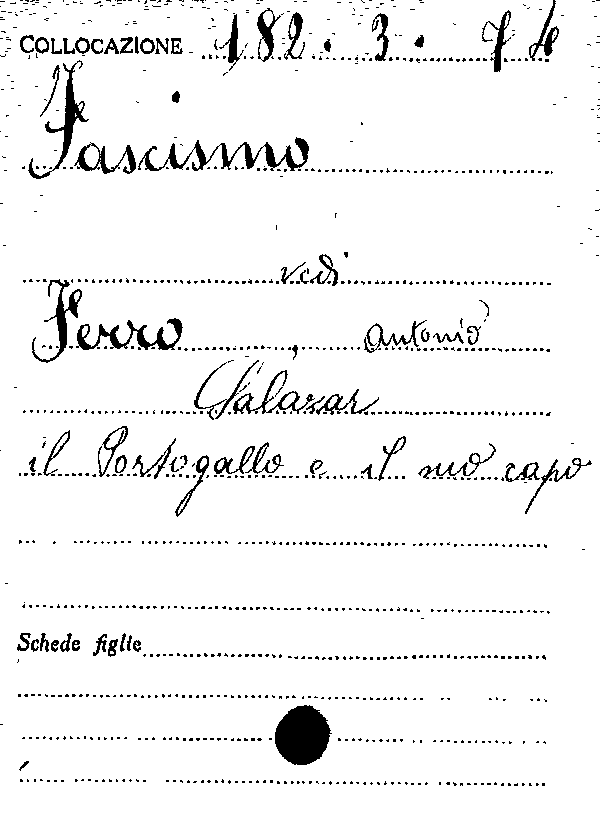 COLLOCAZIONE 182. 3. 74
Fascismo
vedi
Ferro, Antonio
Salazar
il Portogallo e il suo capo
Schede figlie